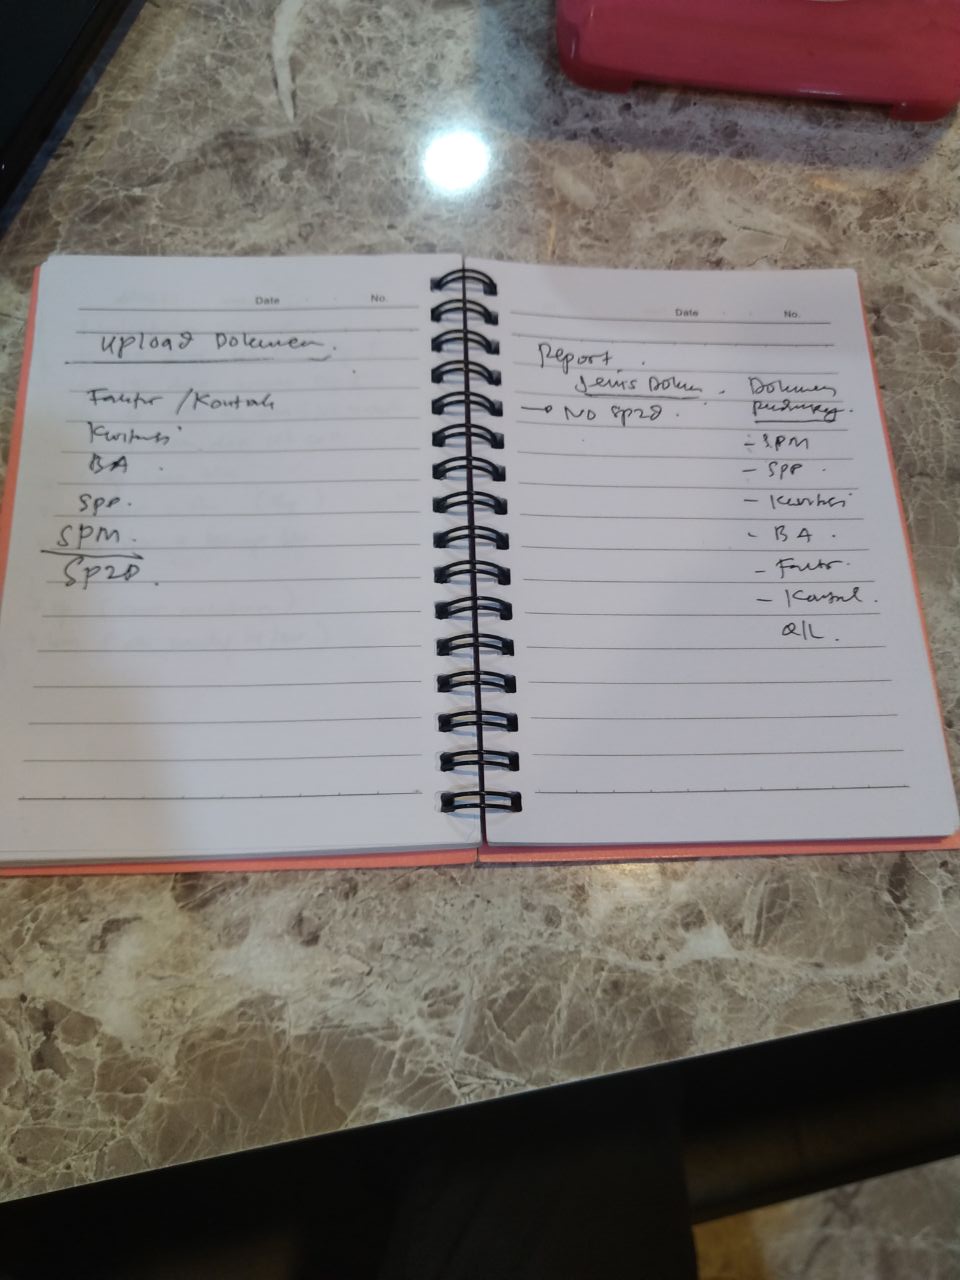 Date No.
Upload Dokumen.
Faktur / Kontrak
Kwitansi
BA.
SPP.
SPM.
SP2D.
Date No.
Report.
Jenis Dokum. Dokumen
→ No SP2D.
- SPM
- SPP.
- Kwitansi
- BA.
- Faktur.